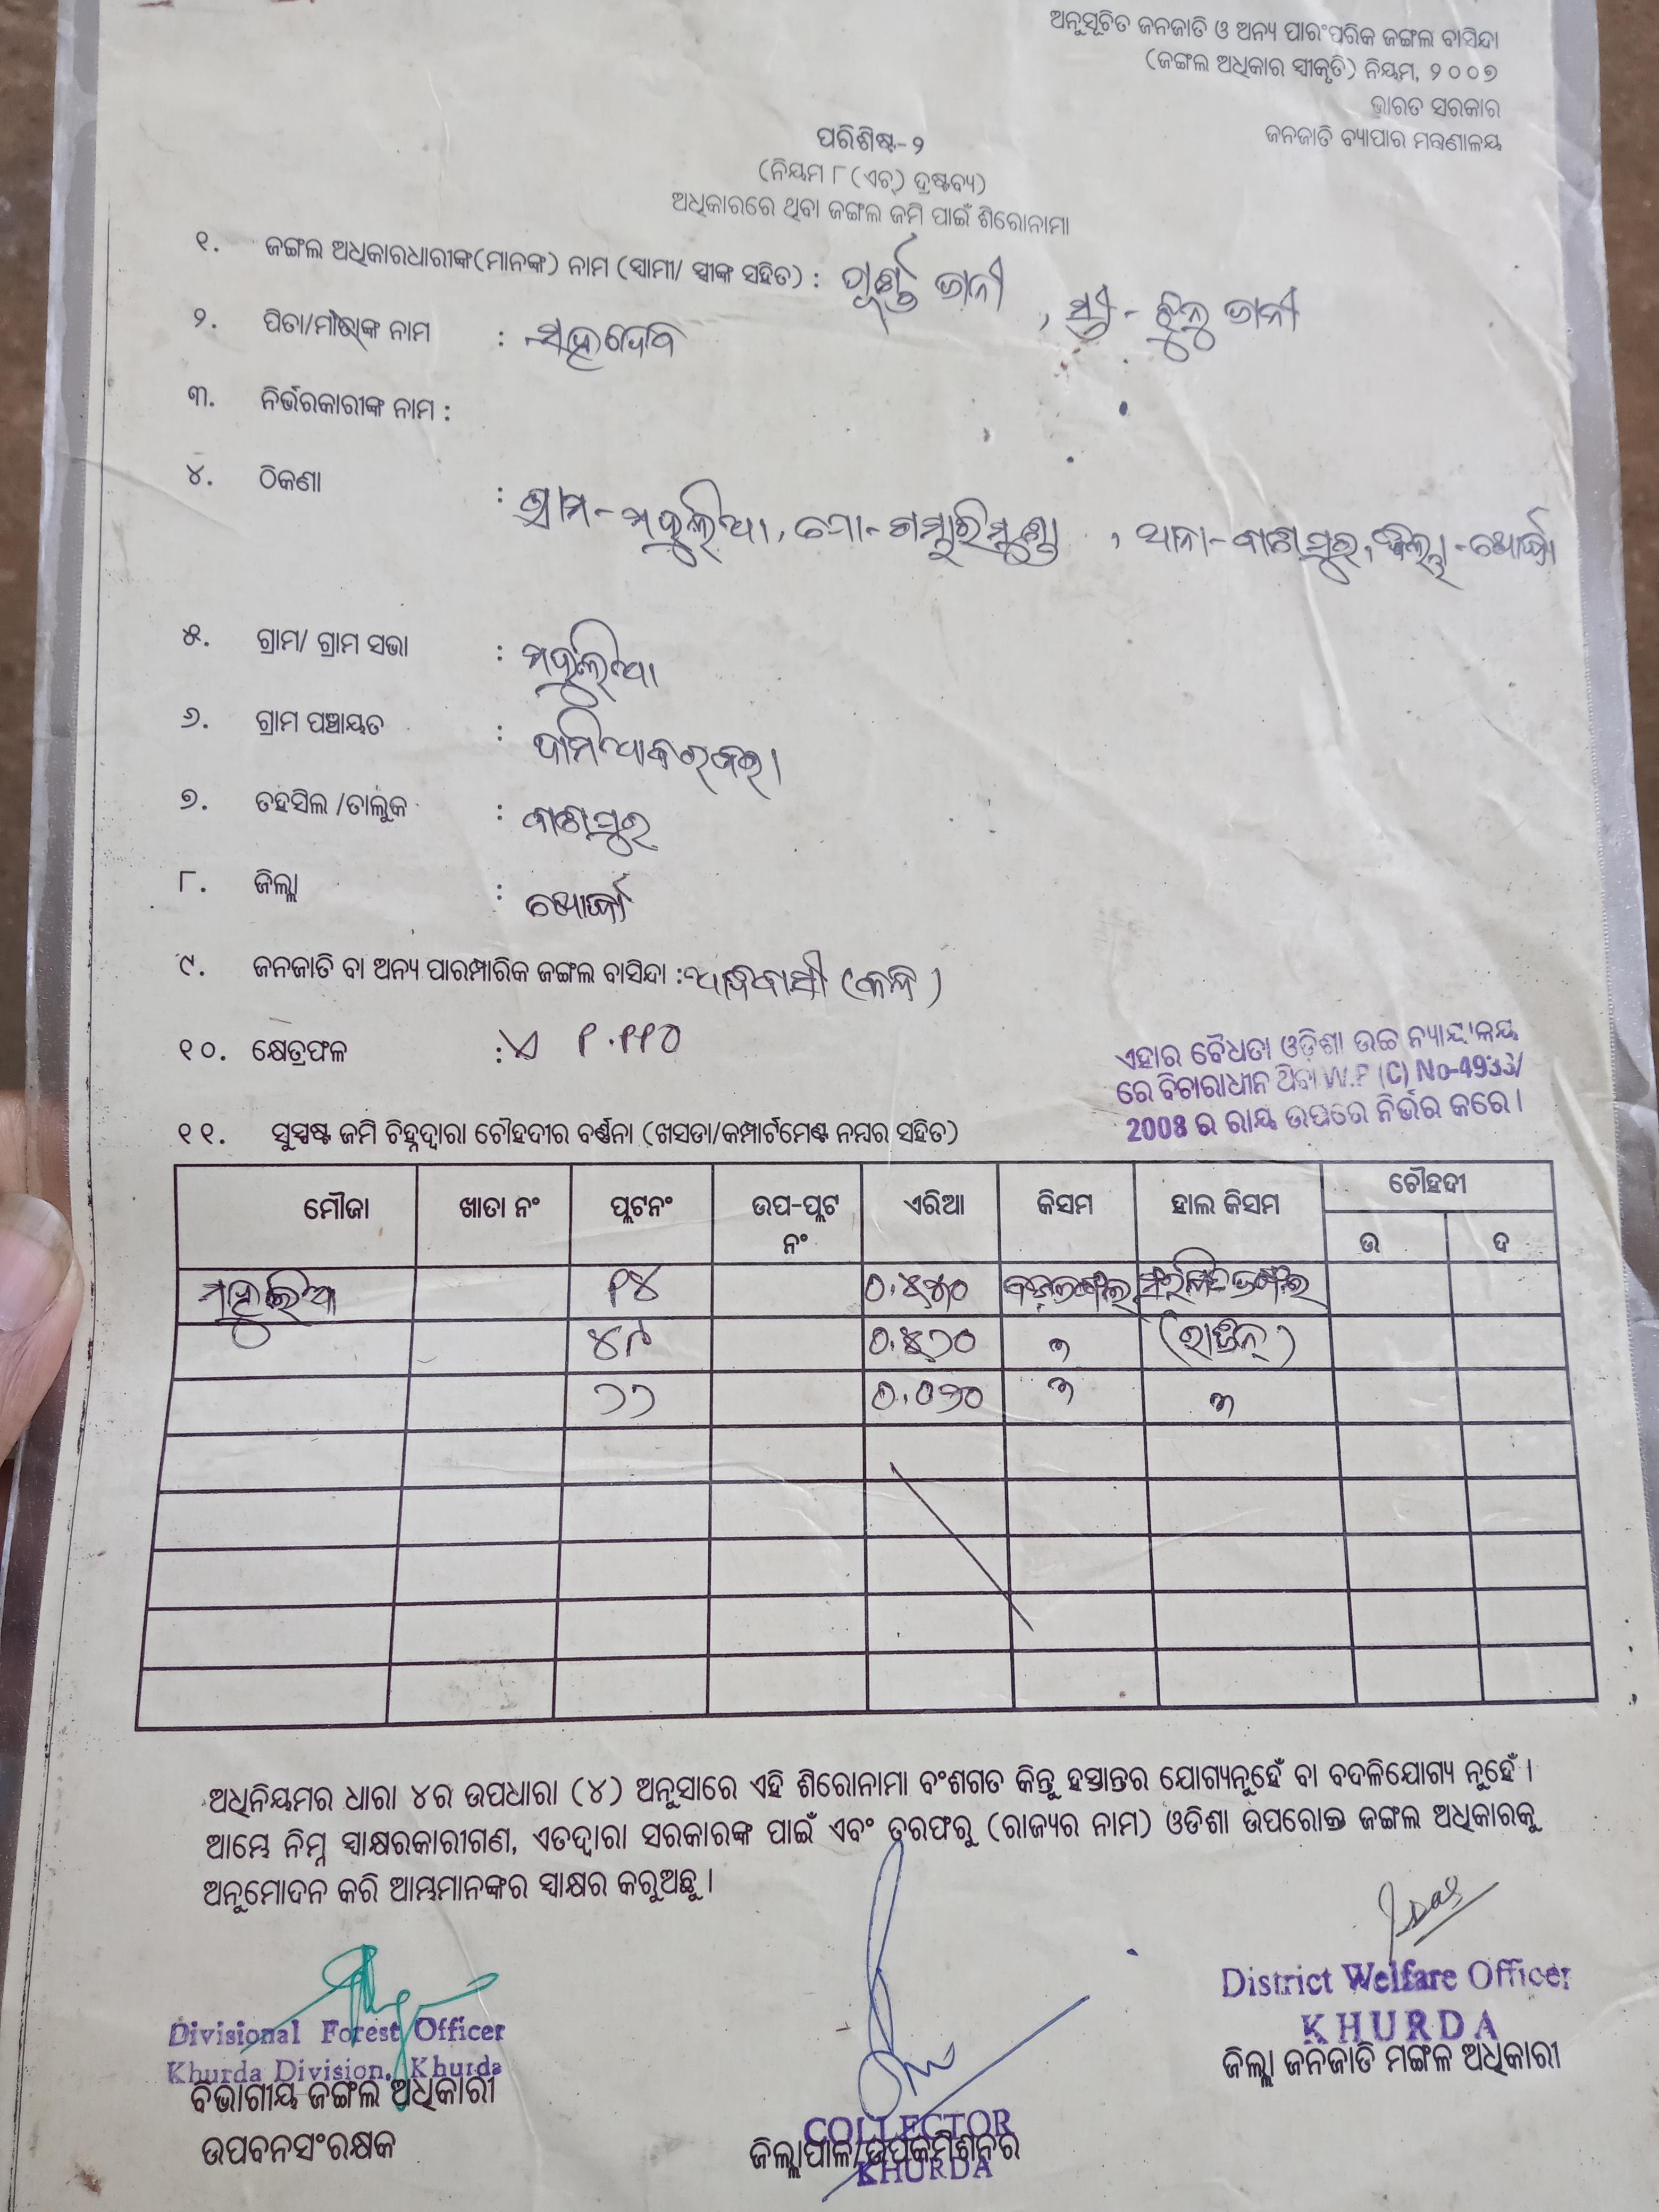 ଅନୁସୂଚିତ ଜନଜାତି ଓ ଅନ୍ୟ ପାରଂପରିକ ଜଙ୍ଗଲ ବାସିନ୍ଦା
(ଜଙ୍ଗଲ ଅଧିକାର ସ୍ୱୀକୃତି) ନିୟମ, ୨୦୦୭
ଭାରତ ସରକାର
ଜନଜାତି ବ୍ୟାପାର ମନ୍ତ୍ରଣାଳୟ
ପରିଶିଷ୍ଟ-୨
(ନିୟମ ୮(ଏଚ୍) ଦ୍ରଷ୍ଟବ୍ୟ)
ଅଧିକାରରେ ଥିବା ଜଙ୍ଗଲ ଜମି ପାଇଁ ଶିରୋନାମା
୧. ଜଙ୍ଗଲ ଅଧିକାରଧାରୀଙ୍କ(ମାନଙ୍କ) ନାମ (ସ୍ୱାମୀ/ ସ୍ତ୍ରୀଙ୍କ ସହିତ) : ପୂର୍ଣ୍ଣ ଜାନୀ , ସ୍ତ୍ରୀ- ଝୁନୁ ଜାନୀ
୨. ପିତା/ମାତାଙ୍କ ନାମ : ସହଦେବ
୩. ନିର୍ଭରକାରୀଙ୍କ ନାମ :
୪. ଠିକଣା : ଗ୍ରାମ-ମହୁଲିଆ, ପୋ-ଗମ୍ଭାରିମୁଣ୍ଡା , ଥାନା-ବାଣପୁର, ଜିଲ୍ଲା-ଖୋର୍ଦ୍ଧା
୫. ଗ୍ରାମ/ ଗ୍ରାମ ସଭା : ମହୁଲିଆ
୬. ଗ୍ରାମ ପଞ୍ଚାୟତ : ଦାମିଆବରବରା
୭. ତହସିଲ /ତାଲୁକ : ବାଣପୁର
୮. ଜିଲ୍ଲା : ଖୋର୍ଦ୍ଧା
୯. ଜନଜାତି ବା ଅନ୍ୟ ପାରମ୍ପାରିକ ଜଙ୍ଗଲ ବାସିନ୍ଦା : ଆଦିବାସୀ (କନ୍ଧ)
୧୦. କ୍ଷେତ୍ରଫଳ : ଏ ୧.୧୧୦
ଏହାର ବୈଧତା ଓଡ଼ିଶା ଉଚ୍ଚ ନ୍ୟାୟାଳୟ
ରେ ବିଚାରାଧୀନ ଥିବା W.P (C) No-4933/
2008 ର ରାୟ ଉପରେ ନିର୍ଭର କରେ।
୧୧. ସୁସ୍ପଷ୍ଟ ଜମି ଚିହ୍ନଦ୍ୱାରା ଚୌହଦୀର ବର୍ଣ୍ଣନା (ଖସଡା/କମ୍ପାର୍ଟମେଣ୍ଟ ନମ୍ବର ସହିତ)
ମୌଜା ଖାତା ନଂ ପ୍ଲଟନଂ ଉପ-ପ୍ଲଟ ନଂ ଏରିଆ କିସମ ହାଲ କିସମ ଚୌହଦୀ
ଉ ଦ
ମହୁଲିଆ ୧୪
୪୯ (ରାଜନ୍)
୨୨ ୦.୦୩୦
ଅଧିନିୟମର ଧାରା ୪ର ଉପଧାରା (୪) ଅନୁସାରେ ଏହି ଶିରୋନାମା ବଂଶଗତ କିନ୍ତୁ ହସ୍ତାନ୍ତର ଯୋଗ୍ୟନୁହେଁ ବା ବଦଳିଯୋଗ୍ୟ ନୁହେଁ।
ଆମ୍ଭେ ନିମ୍ନ ସ୍ୱାକ୍ଷରକାରୀଗଣ, ଏତଦ୍ୱାରା ସରକାରଙ୍କ ପାଇଁ ଏବଂ ତରଫରୁ (ରାଜ୍ୟର ନାମ) ଓଡିଶା ଉପରୋକ୍ତ ଜଙ୍ଗଲ ଅଧିକାରକୁ
ଅନୁମୋଦନ କରି ଆମ୍ଭମାନଙ୍କର ସ୍ୱାକ୍ଷର କରୁଅଛୁ।
Divisional Forest Officer
Khurda Division, Khurda
ବିଭାଗୀୟ ଜଙ୍ଗଲ ଅଧିକାରୀ
ଉପବନସଂରକ୍ଷକ
COLLECTOR
ଜିଲ୍ଲାପାଳ/ଉପକମିଶନର
KHURDA
District Welfare Officer
KHURDA
ଜିଲ୍ଲା ଜନଜାତି ମଙ୍ଗଳ ଅଧିକାରୀ